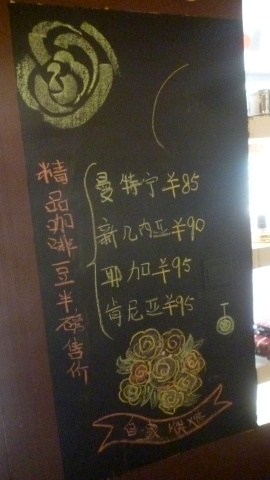 精品咖啡豆半磅售价
曼特宁￥85
新几内亚￥90
耶加￥95
肯尼亚￥95
自家烘焙